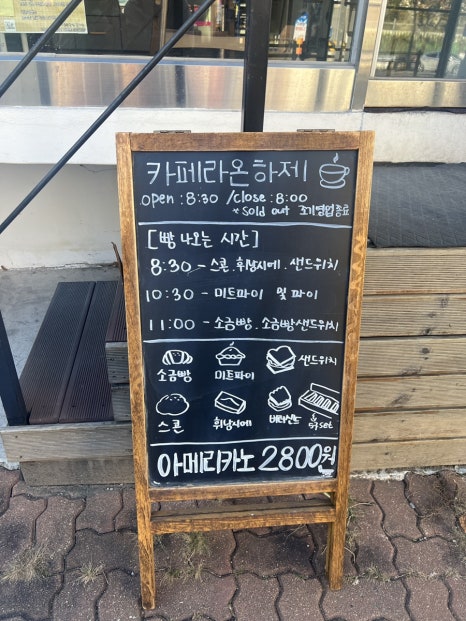 카페라온하제
open : 8:30 / close : 8:00
* sold out 조기영업종료
[빵 나오는 시간]
8:30 - 스콘. 휘낭시에. 샌드위치
10:30 - 미트파이 및 파이
11:00 - 소금빵. 소금빵샌드위치
소금빵 미트파이 샌드위치
스콘 휘낭시에
아메리카노 2800원